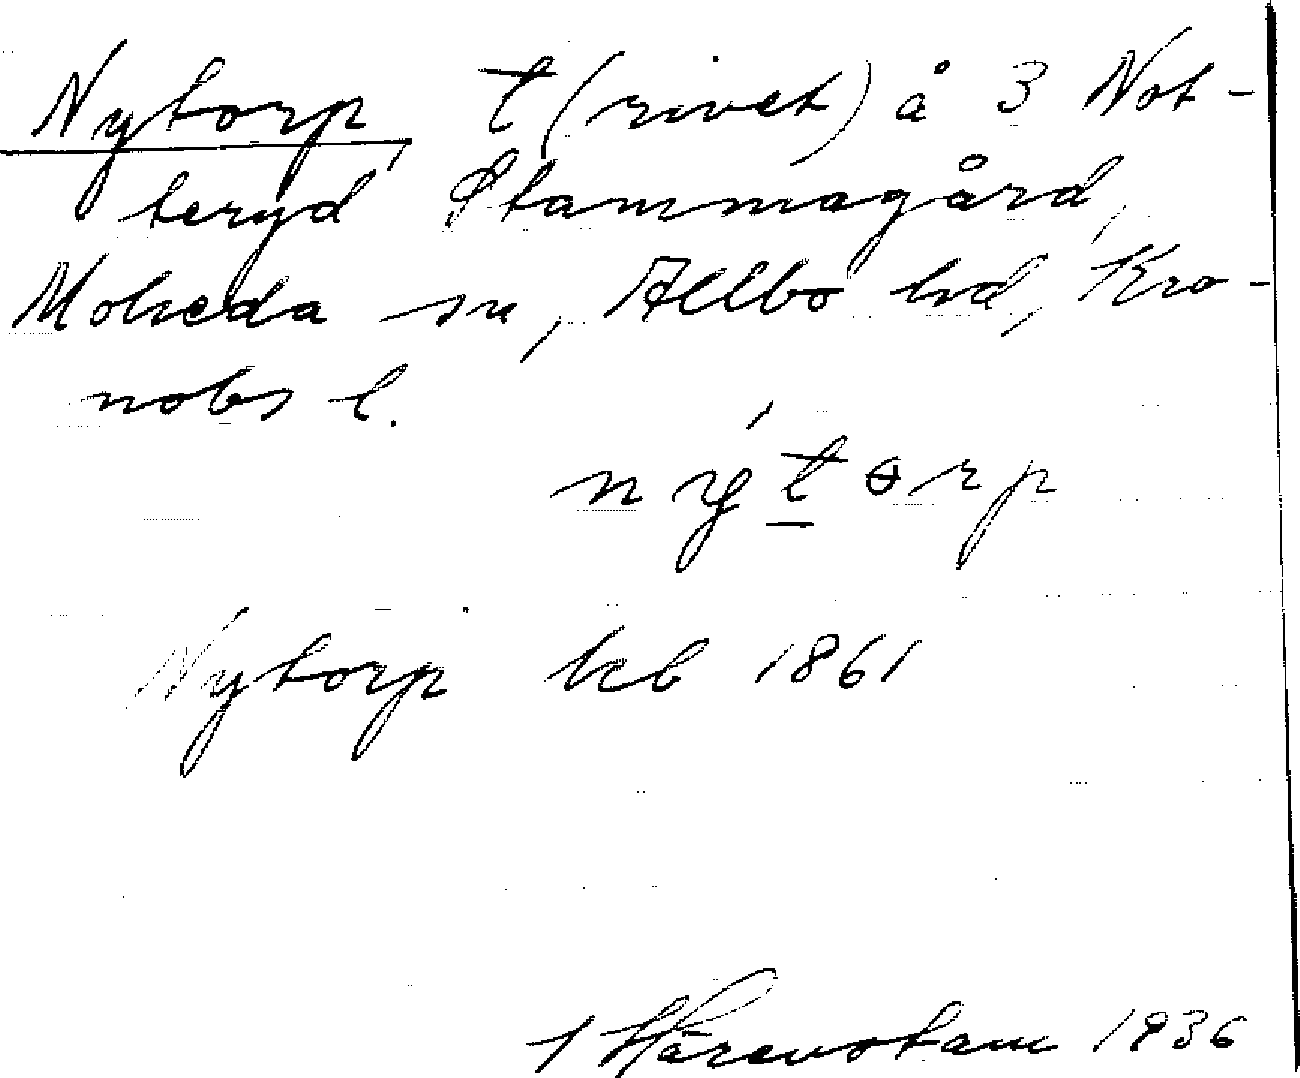 Nytorp, t (rivet) å 3 Not-
teryd Stammagård,
Moheda sn, Allbo hd, Kro-
nobs l.
nýtorp
Nytorp kb 1861
Härenstam 1936